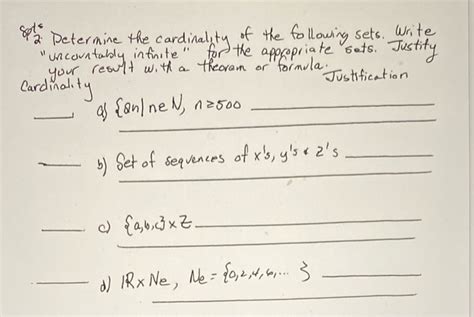 8pts 2 Determine the cardinality of the following sets. Write
"uncountably infinite" for the appropriate sets. Justify
your result with a theorem or formula.
Cardinality Justification
a) {8n|n∈N, n≥500
b) Set of sequences of x's, y's & z's
c) {a,b,c}×Z
d) IR×Ne, Ne = {0,2,4,6,... }